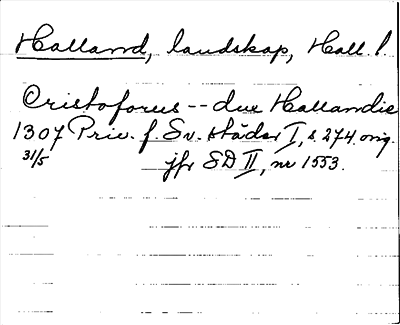 Halland, landskap, Hall. l.
Cristoforus -- dux Hallandie
1307 Priv. f. Sv. städer I, s. 274. orig.
31/5 jfr SD II, nr 1553.